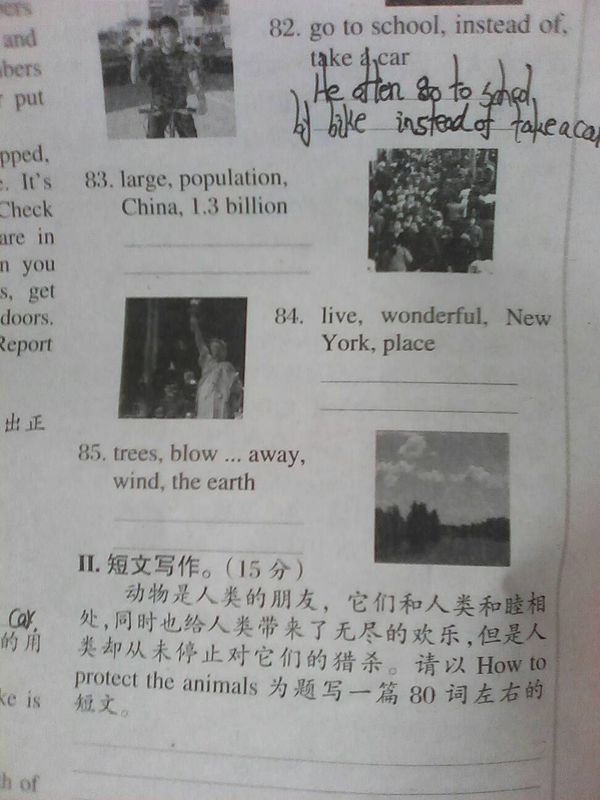 and
put
pped,
It's
Check
are in
n you
s, get
doors.
Report
出正
Car
的用
ke is
h of
82. go to school, instead of,
take a car
He often go to school
by bike instead of take a car
83. large, population,
China, 1.3 billion
84. live, wonderful, New
York, place
85. trees, blow ... away,
wind, the earth
II. 短文写作。(15分)
动物是人类的朋友，它们和人类和睦相
处,同时也给人类带来了无尽的欢乐,但是人
类却从未停止对它们的猎杀。请以 How to
protect the animals 为题写一篇 80 词左右的
短文。